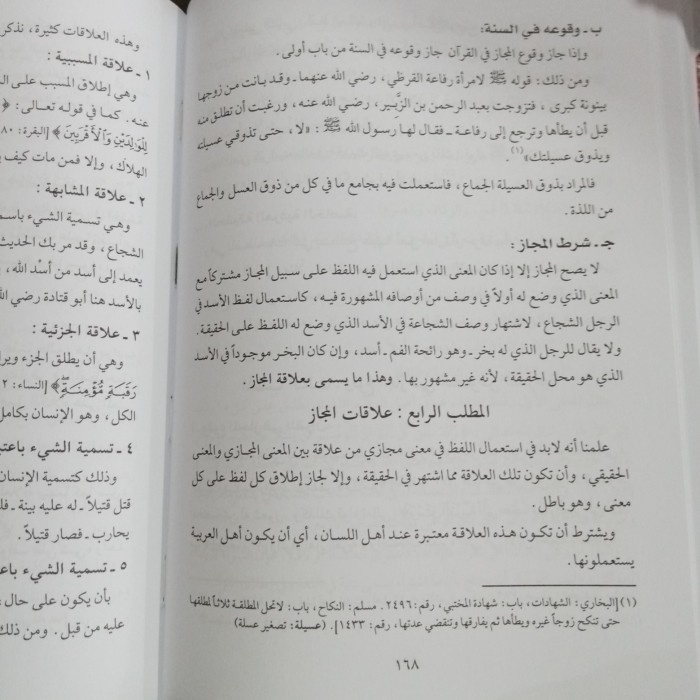 ب ـ وقوعه في السنة:
وإذا جاز وقوع المجاز في القرآن جاز وقوعه في السنة من باب أولى .
ومن ذلك : قوله ﷺ لامرأة رفاعة القرظي ، رضي الله عنهما ـ وقد بانت من زوجها
بينونة كبرى ، فتزوجت بعبد الرحمن بن الزَّبير ، رضي الله عنه ، ورغبت أن تطلق منه
قبل أن يطأها وترجع إلى رفاعة ـ فقال لها رسول الله ﷺ : «لا ، حتى تذوقي عسيلته
ويذوق عسيلتك»(١) .
فالمراد بذوق العسيلة الجماع ، فاستعملت فيه بجامع ما في كل من ذوق العسل والجماع
من اللذة .
جـ ـ شرط المجاز :
لا يصح المجاز إلا إذا كان المعنى الذي استعمل فيه اللفظ على سبيل المجاز مشتركاً مع
المعنى الذي وضع له أولاً في وصف من أوصافه المشهورة فيه ، كاستعمال لفظ الأسد في
الرجل الشجاع ، لاشتهار وصف الشجاعة في الأسد الذي وضع له اللفظ على الحقيقة .
ولا يقال للرجل الذي له بخر ـ وهو رائحة الفم ـ أسد ، وإن كان البخر موجوداً في الأسد
الذي هو محل الحقيقة ، لأنه غير مشهور بها . وهذا ما يسمى بعلاقة المجاز .
المطلب الرابع : علاقات المجاز
علمنا أنه لابد في استعمال اللفظ في معنى مجازي من علاقة بين المعنى المجازي والمعنى
الحقيقي ، وأن تكون تلك العلاقة مما اشتهر في الحقيقة ، وإلا لجاز إطلاق كل لفظ على كل
معنى ، وهو باطل .
ويشترط أن تكون هذه العلاقة معتبرة عند أهل اللسان ، أي أن يكون أهل العربية
يستعملونها .
(١) [البخاري : الشهادات ، باب : شهادة المختبي ، رقم : ٢٤٩٦ . مسلم : النكاح ، باب : لا تحل المطلقة ثلاثاً لمطلقها
حتى تنكح زوجاً غيره ويطأها ثم يفارقها وتنقضي عدتها ، رقم : ١٤٣٣] . (عسيلة : تصغير عسلة)
١٦٨
وهذه العلاقات كثيرة ، نذكر
١ ـ علاقة المسببية :
وهي إطلاق المسبب على
عنه . كما في قوله تعالى : ﴿
لِلْوَٰلِدَيْنِ وَٱلْأَقْرَبِينَ﴾ [البقرة : ٨٠
الهلاك ، وإلا فمن مات كيف
٢ ـ علاقة المشابهة :
وهي تسمية الشيء باسم
الشجاع ، وقد مر بك الحديث
يعمد إلى أسد من أسْد الله ،
بالأسد هنا أبو قتادة رضي
٣ ـ علاقة الجزئية :
وهي أن يطلق الجزء
رَقَبَةٍ مُّؤْمِنَةٍ﴾ [النساء : ٢
الكل ، وهو الإنسان بكامل
٤ ـ تسمية الشيء
وذلك كتسمية الإنسان
قتل قتيلاً ـ له عليه بينة ـ
يحارب ـ فصار قتيلاً .
٥ ـ تسمية الشيء
بأن يكون على حال ،
عليه من قبل . ومن ذلك